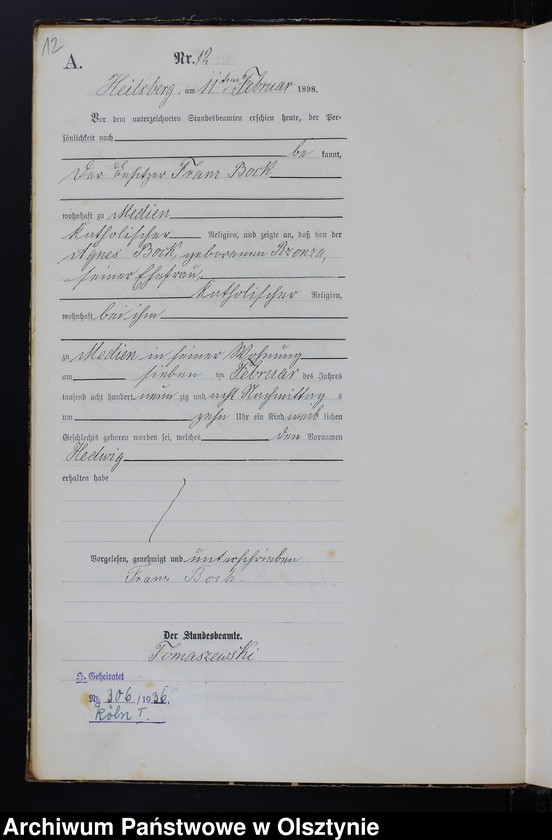 12
A.
Nr. 12
Heilsberg, am 11ten Februar 1898.
Vor dem unterzeichneten Standesbeamten erschien heute, der Per-
sönlichkeit nach
be kannt,
der Besitzer Franz Bock
wohnhaft zu Medien
katholischer Religion, und zeigte an, daß von der
Agnes Bock, geborenen Bronza,
seiner Ehefrau,
katholischer Religion,
wohnhaft bei ihm
zu Medien in seiner Wohnung
am sieben ten Februar des Jahres
tausend acht hundert neun zig und acht Nachmittag s
um zehn Uhr ein Kind weib lichen
Geschlechts geboren worden sei, welches den Vornamen
Hedwig
erhalten habe
Vorgelesen, genehmigt und unterschrieben
Franz Bock.
Der Standesbeamte.
Tomaszewski
H. Geheiratet
Nr. 306/1936.
Köln I.
Archiwum Państwowe w Olsztynie